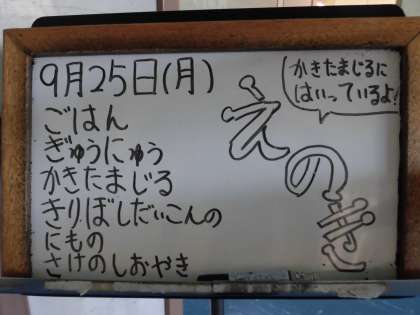 9月25日(月)
ごはん
ぎゅうにゅう
かきたまじる
きりぼしだいこんの
にもの
さけのしおやき
かきたまじるに
はいっているよ!
えのき